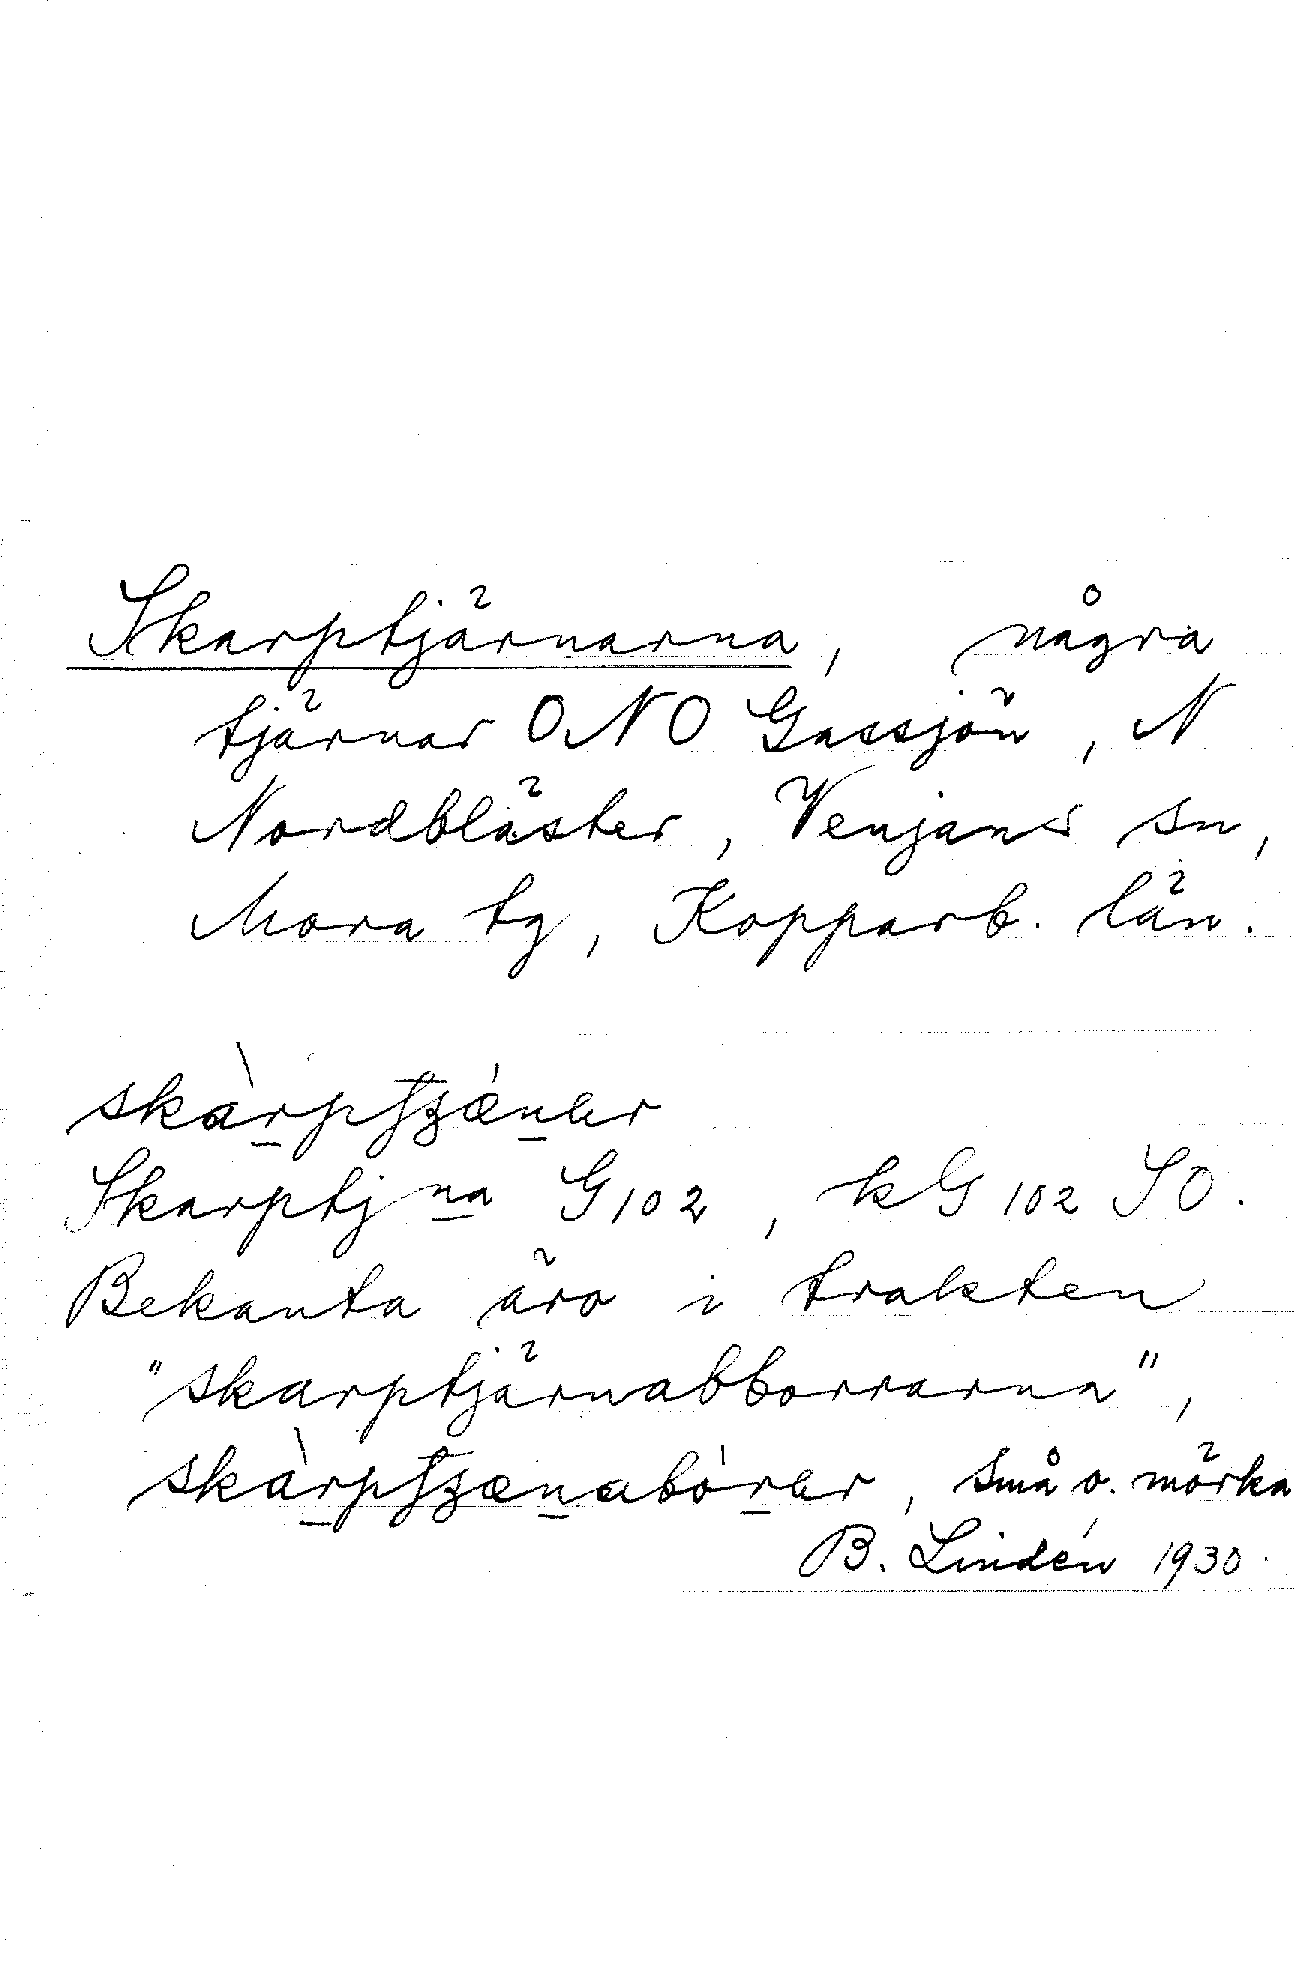 Skarptjärnarna, några
tjärnar ONO Gassjön, N
Nordbläster, Venjans sn,
Mora tg, Kopparb. län.
Skarptjna G102, kG 102 SO.
Bekanta äro i trakten
"skarptjärnabborrarna",
små o. mörka
B. Lindén 1930.